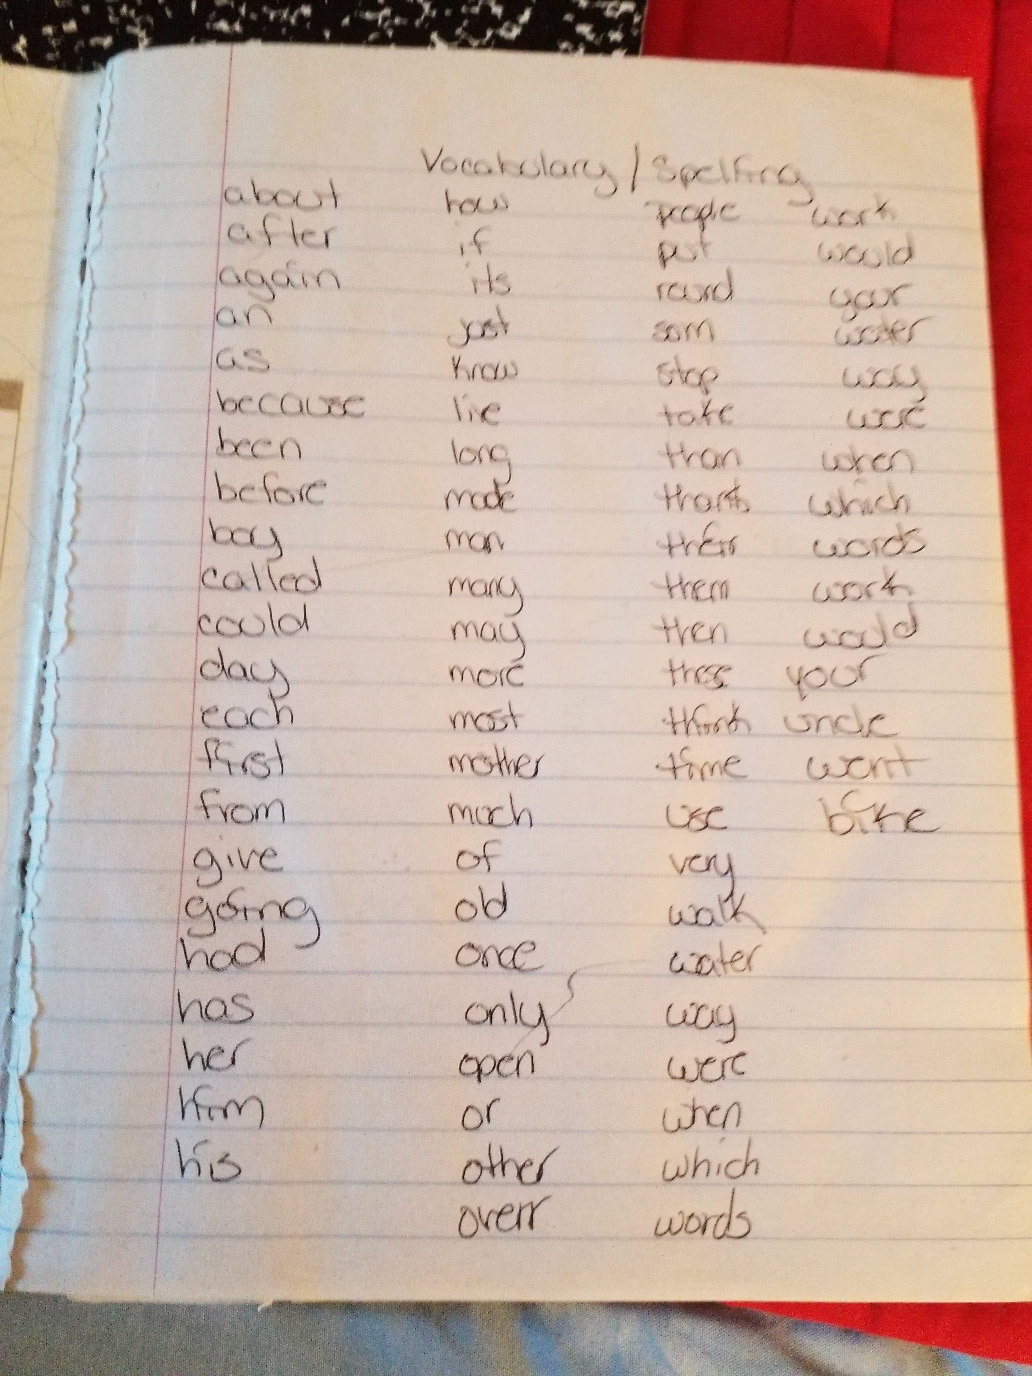 Vocabulary / Spelling
about how people work
after if put would
again its round your
an just som water
as know stop way
because live take were
been long than when
before made thank which
boy man their words
called many them work
could may then would
day more these your
each most think uncle
first mother time went
from much use bike
give of very
going old walk
had once water
has only way
her open were
him or when
his other which
overr words